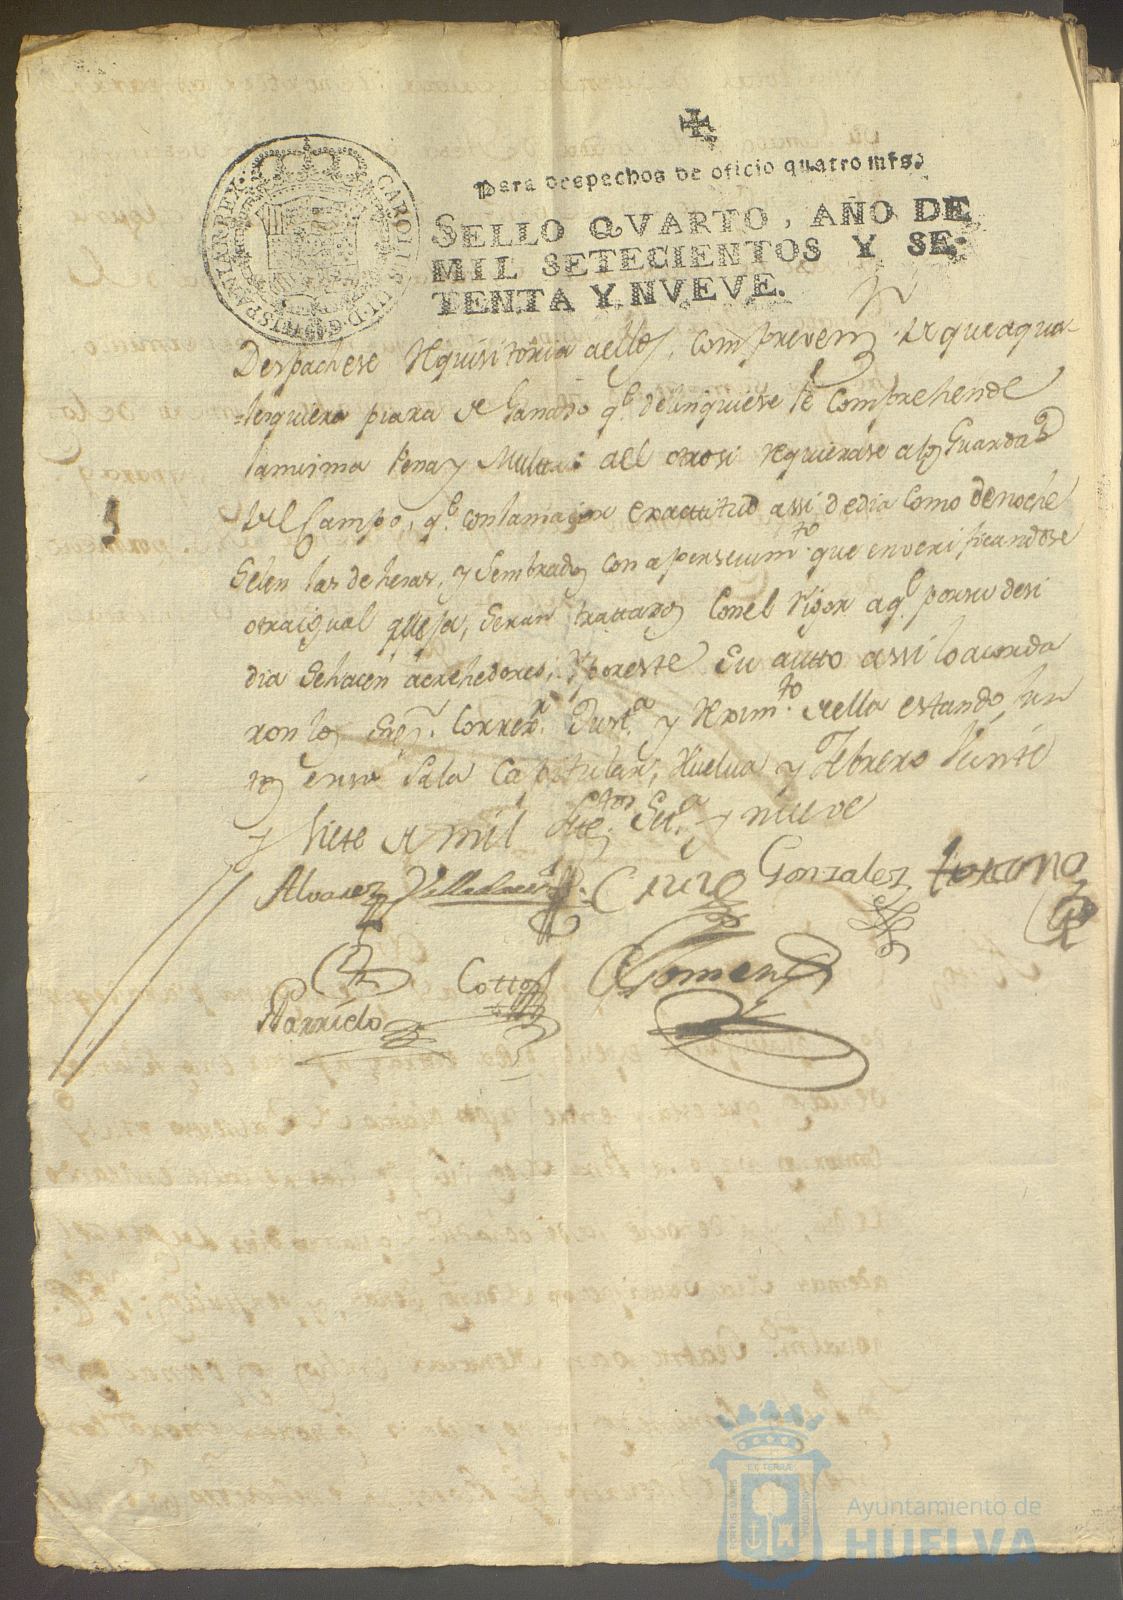 CAROLUS III D. G. HISPANIAR. REX.
Para despachos de oficio quatro mrs.
SELLO QVARTO, AÑO DE
MIL SETECIENTOS Y SE-
TENTA Y NVEVE.
Despachese requisitoria a ellos, com prevenn. de que a qua
lesquiera piara de Ganado qe. delinquiese le Comprehende
la misma Pena y Multa: al otrosi requierase a los Guardas
del Campo, qe. con la maior exactitud assi de dia como de noche
Selen las dehesas, y Sembrados con apersevimto. que en verificandose
otra igual quexa, seran trattados con el rigor a qe. por su desi
dia se hacen acrehedores; Y por este Su autto assi lo acorda
ron los Sres. Correxr. Justa. y Reximto. de ella estando jun
tos en su Sala Capitular; Huelva y Febrero Veinte
y Siete de mil Setetos. Seta. y nueve
Alvarez Villa Cruz Gonzalez Toscano
Garrido Cotto Gomez
Ayuntamiento de
HUELVA